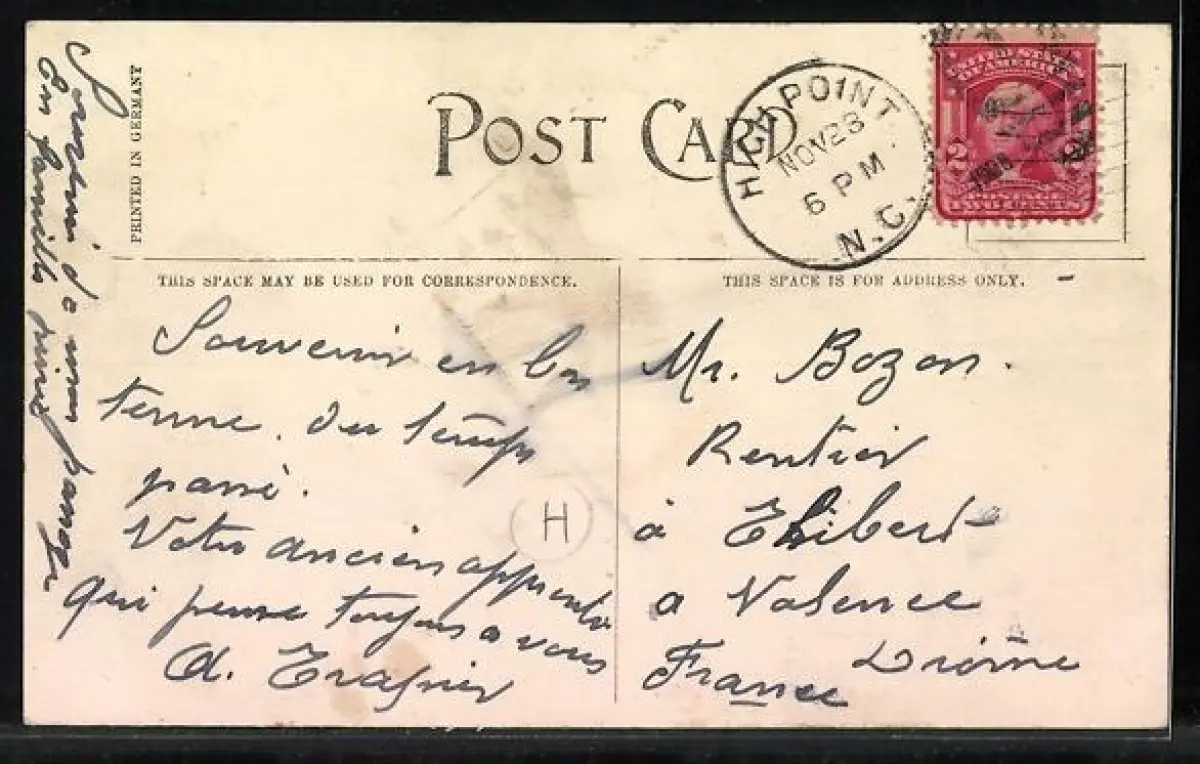 POST CARD
PRINTED IN GERMANY
HIGH POINT
NOV 23
6 PM
N.C.
UNITED STATES
OF AMERICA
2 2
POSTAGE
TWO CENTS
THIS SPACE MAY BE USED FOR CORRESPONDENCE.
THIS SPACE IS FOR ADDRESS ONLY.
Souvenir en bon
terme. du temps
passé.
Votre ancien apprenti
qui pense toujours a vous
A.
H
Mr. Bozon.
Rentier
à Thibert
a Valence
France Drôme
Souvenir de mon passage
En famille